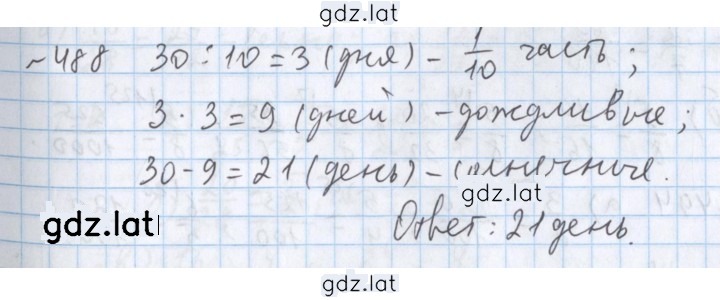 gdz.lat
~488 30:10=3 (дня) - 1/10 часть;
3·3=9 (дней) - дождливые;
30-9=21 (день) - солнечные.
gdz.lat
Ответ: 21 день.
gdz.lat